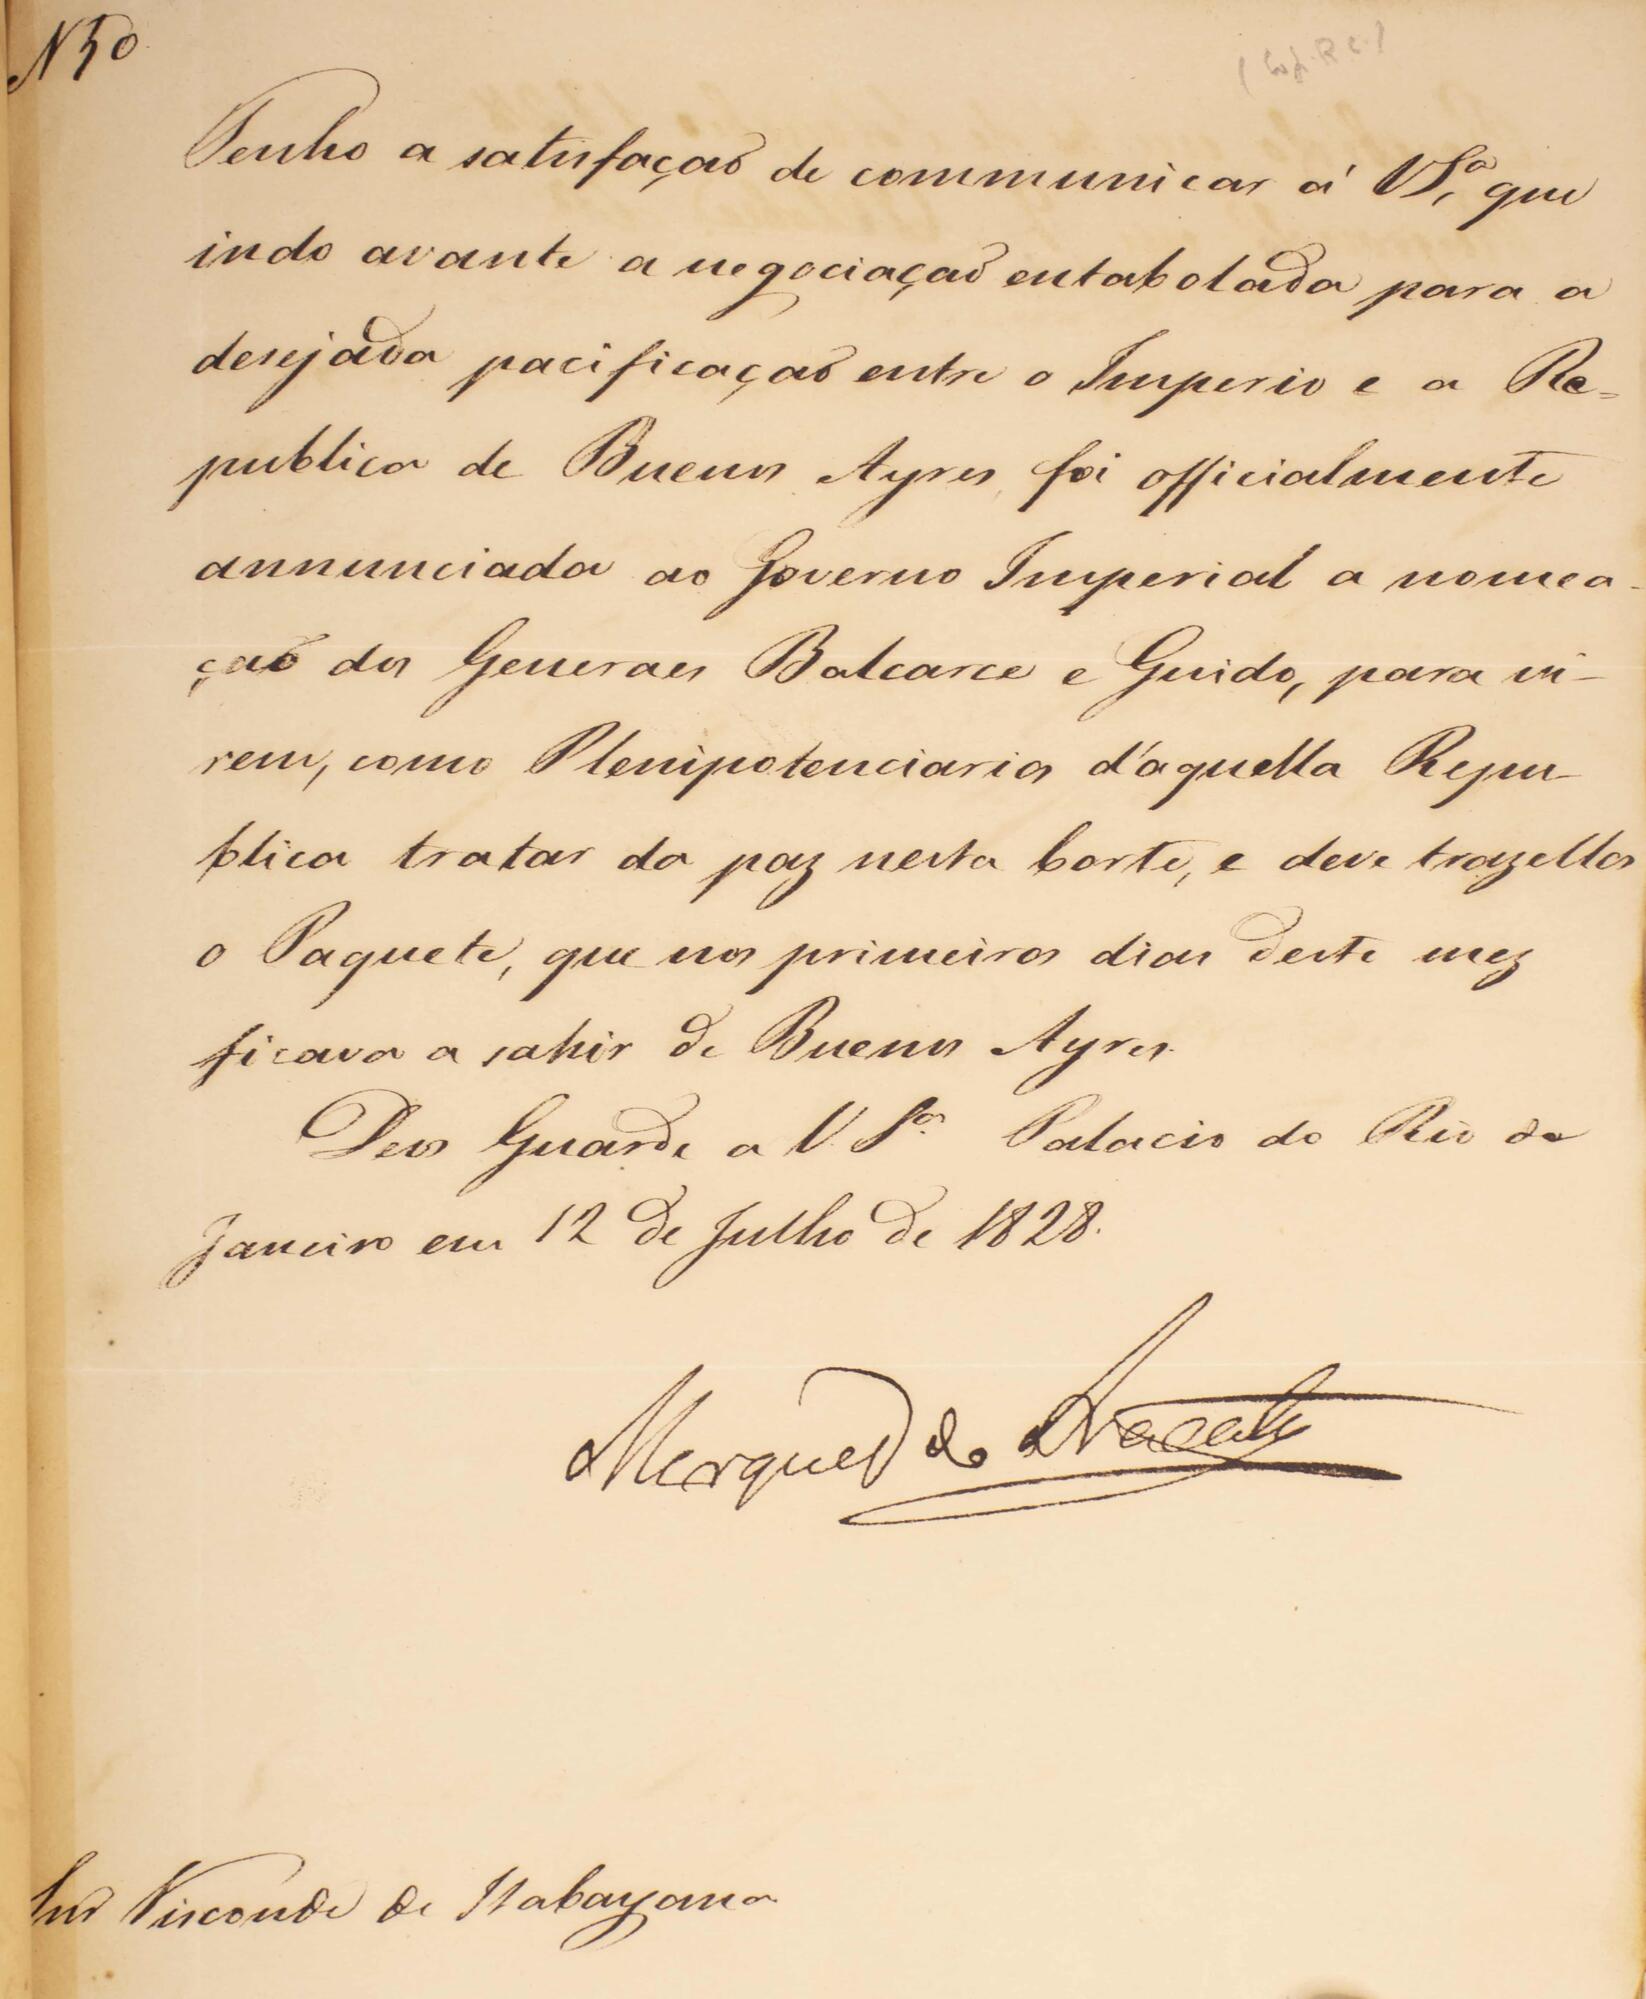 N 50
Tenho a satisfaçaõ de communicar á V S.ª que
indo avante a negociaçaõ entabolada para a
desejada pacificaçaõ entre o Imperio e a Re=
publica de Buenos Ayres, foi officialmente
annunciada ao Governo Imperial a nomea-
çaõ dos Generaes Balcarce e Guido, para vi-
rem, como Plenipotenciarios d'aquella Repu-
blica tratar da paz nesta Corte, e deve trazellos
o Paquete, que nos primeiros dias deste mez
ficava a sahir de Buenos Ayres.
Deos Guarde a V. S.ª Palacio do Rio de
Janeiro em 12 de Julho de 1828.
Marquez do Aracaty
Snr Visconde de Itabayana